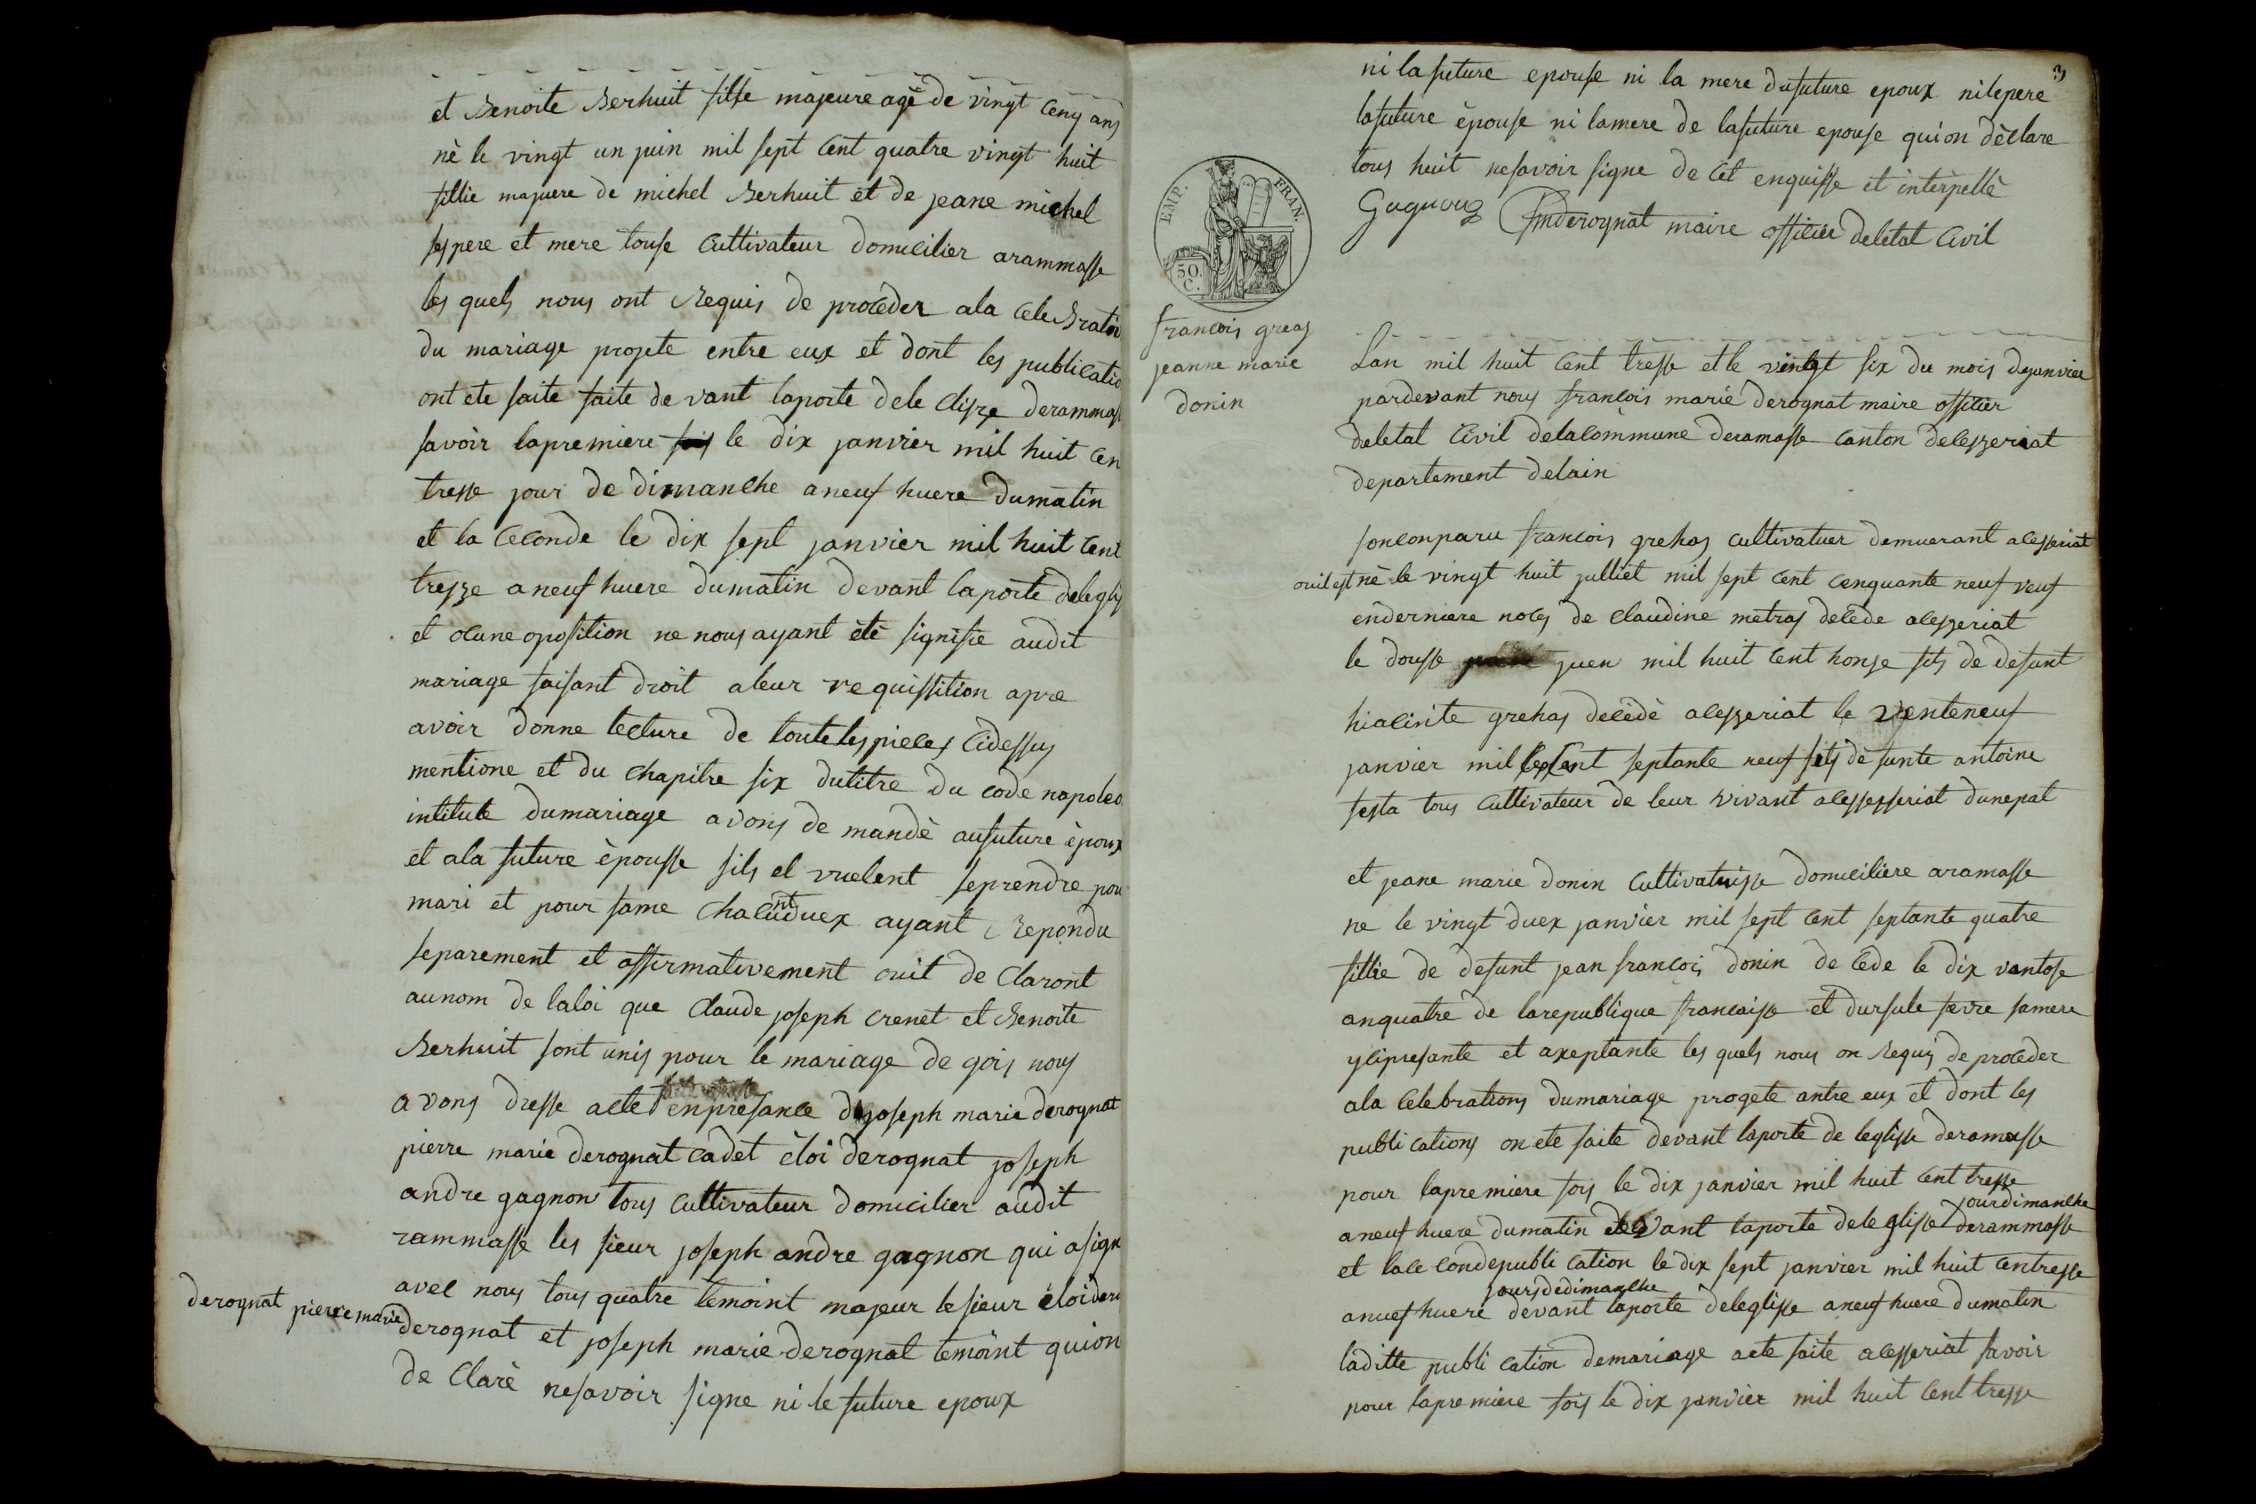 et Benoite Berhuit fille majeure agè de vingt cenq ans
nè le vingt un juin mil sept cent quatre vingt huit
fillie majuere de michel Berhuit et de jeane michel
ses pere et mere touse cultivateur domicilier arammasse
les quels nous ont Requis de proceder ala celebration
du mariage projete entre eux et dont les publicatio
ont ete faite faite de vant laporte dele clisze derammas
savoir lapremiere fois le dix janvier mil huit cen
tresse jour de dimanche a neuf huere dumatin
et la ceconde le dix sept janvier mil huit cent
tresze a neuf huere dumatin devant laporte deleglis
et ocune oposition ne nous ayant ètè signifie audit
mariage faisant droit aleur requissition apre
avoir donne lecture de toute les pieces cidessus
mentione et du chapitre six dutitre du code napoleo
intitule dumariage avons de mandè aufuture èpoux
et ala future èpousse sils el vuelent seprendre pou
mari et pour fame chacunt duex ayant Repondu
separement et affirmativement ouit de claront
aunom de laloi que Claude joseph crenet et Benoite
Berhuit sont unis pour le mariage de qois nous
avons dresse acte enpresance de joseph marie derognat
pierre marie derognat cadet èloi derognat joseph
andre gagnon tous cultivateur domicilier audit
rammasse les sieur joseph andre gagnon qui a sign
avec nous tous quatre temoint majeur le sieur èloi dero
derognat pierre marie
derognat et joseph marie derognat temoint qui on
de clarè nesavoir signe ni le future epoux
3
ni lafuture epouse ni la mere dufuture epoux nilepere
lafuture èpouse ni lamere de lafuture epouse qui on dèclare
tous huit nesavoir signe de cet enquisse et intèrpellè
Gagnon fmderognat maire officier deletat civil
EMP. FRAN.
50.
C.
francois greas
jeanne marie
donin
Lan mil huit cent tresse et le vingt six du mois dejanvier
pardevant nous francois marie derognat maire officier
deletat civil delacommune deramasse canton deceszeriat
departement delain
sonconparu francois grehas cultivatuer demuerant acesseriat
ouil est nè le vingt huit julliet mil sept cent cenquante neuf veuf
enderniere noces de claudine metras decede aceszeriat
le dousse juen mil huit cent honze fils de defunt
hiacinte grehas decèdè aceszeriat le venteneuf
janvier mil septant septante neuf fils de funte antoine
festa tous cultivateur de leur vivant acessesseriat dunepat
et jeane marie donin cultivatrisse domiciliere aramasse
ne le vingt duex janvier mil sept cent septante quatre
fillie de defunt jean francois donin de cede le dix vantose
anquatre de larepublique francaise et dursule ferre samere
yci presante et axeptante les quels nous on Requis de proceder
ala celebrations dumariage progete antre eux et dont les
publi cations on ete faite devant laporte de leglisse deramasse
pour lapremiere fois le dix janvier mil huit cent tresse
jour dimanche
a neuf huere dumatin devant laporte dele glisse derammasse
et lace conde publi cation le dix sept janvier mil huit centresse
jours dedimanche
anuef huere devant laporte deleglisse a neuf huere dumatin
laditte publi cation demariage aete faite acesseriat savoir
pour lapremiere fois le dix janvier mil huit cent tresse